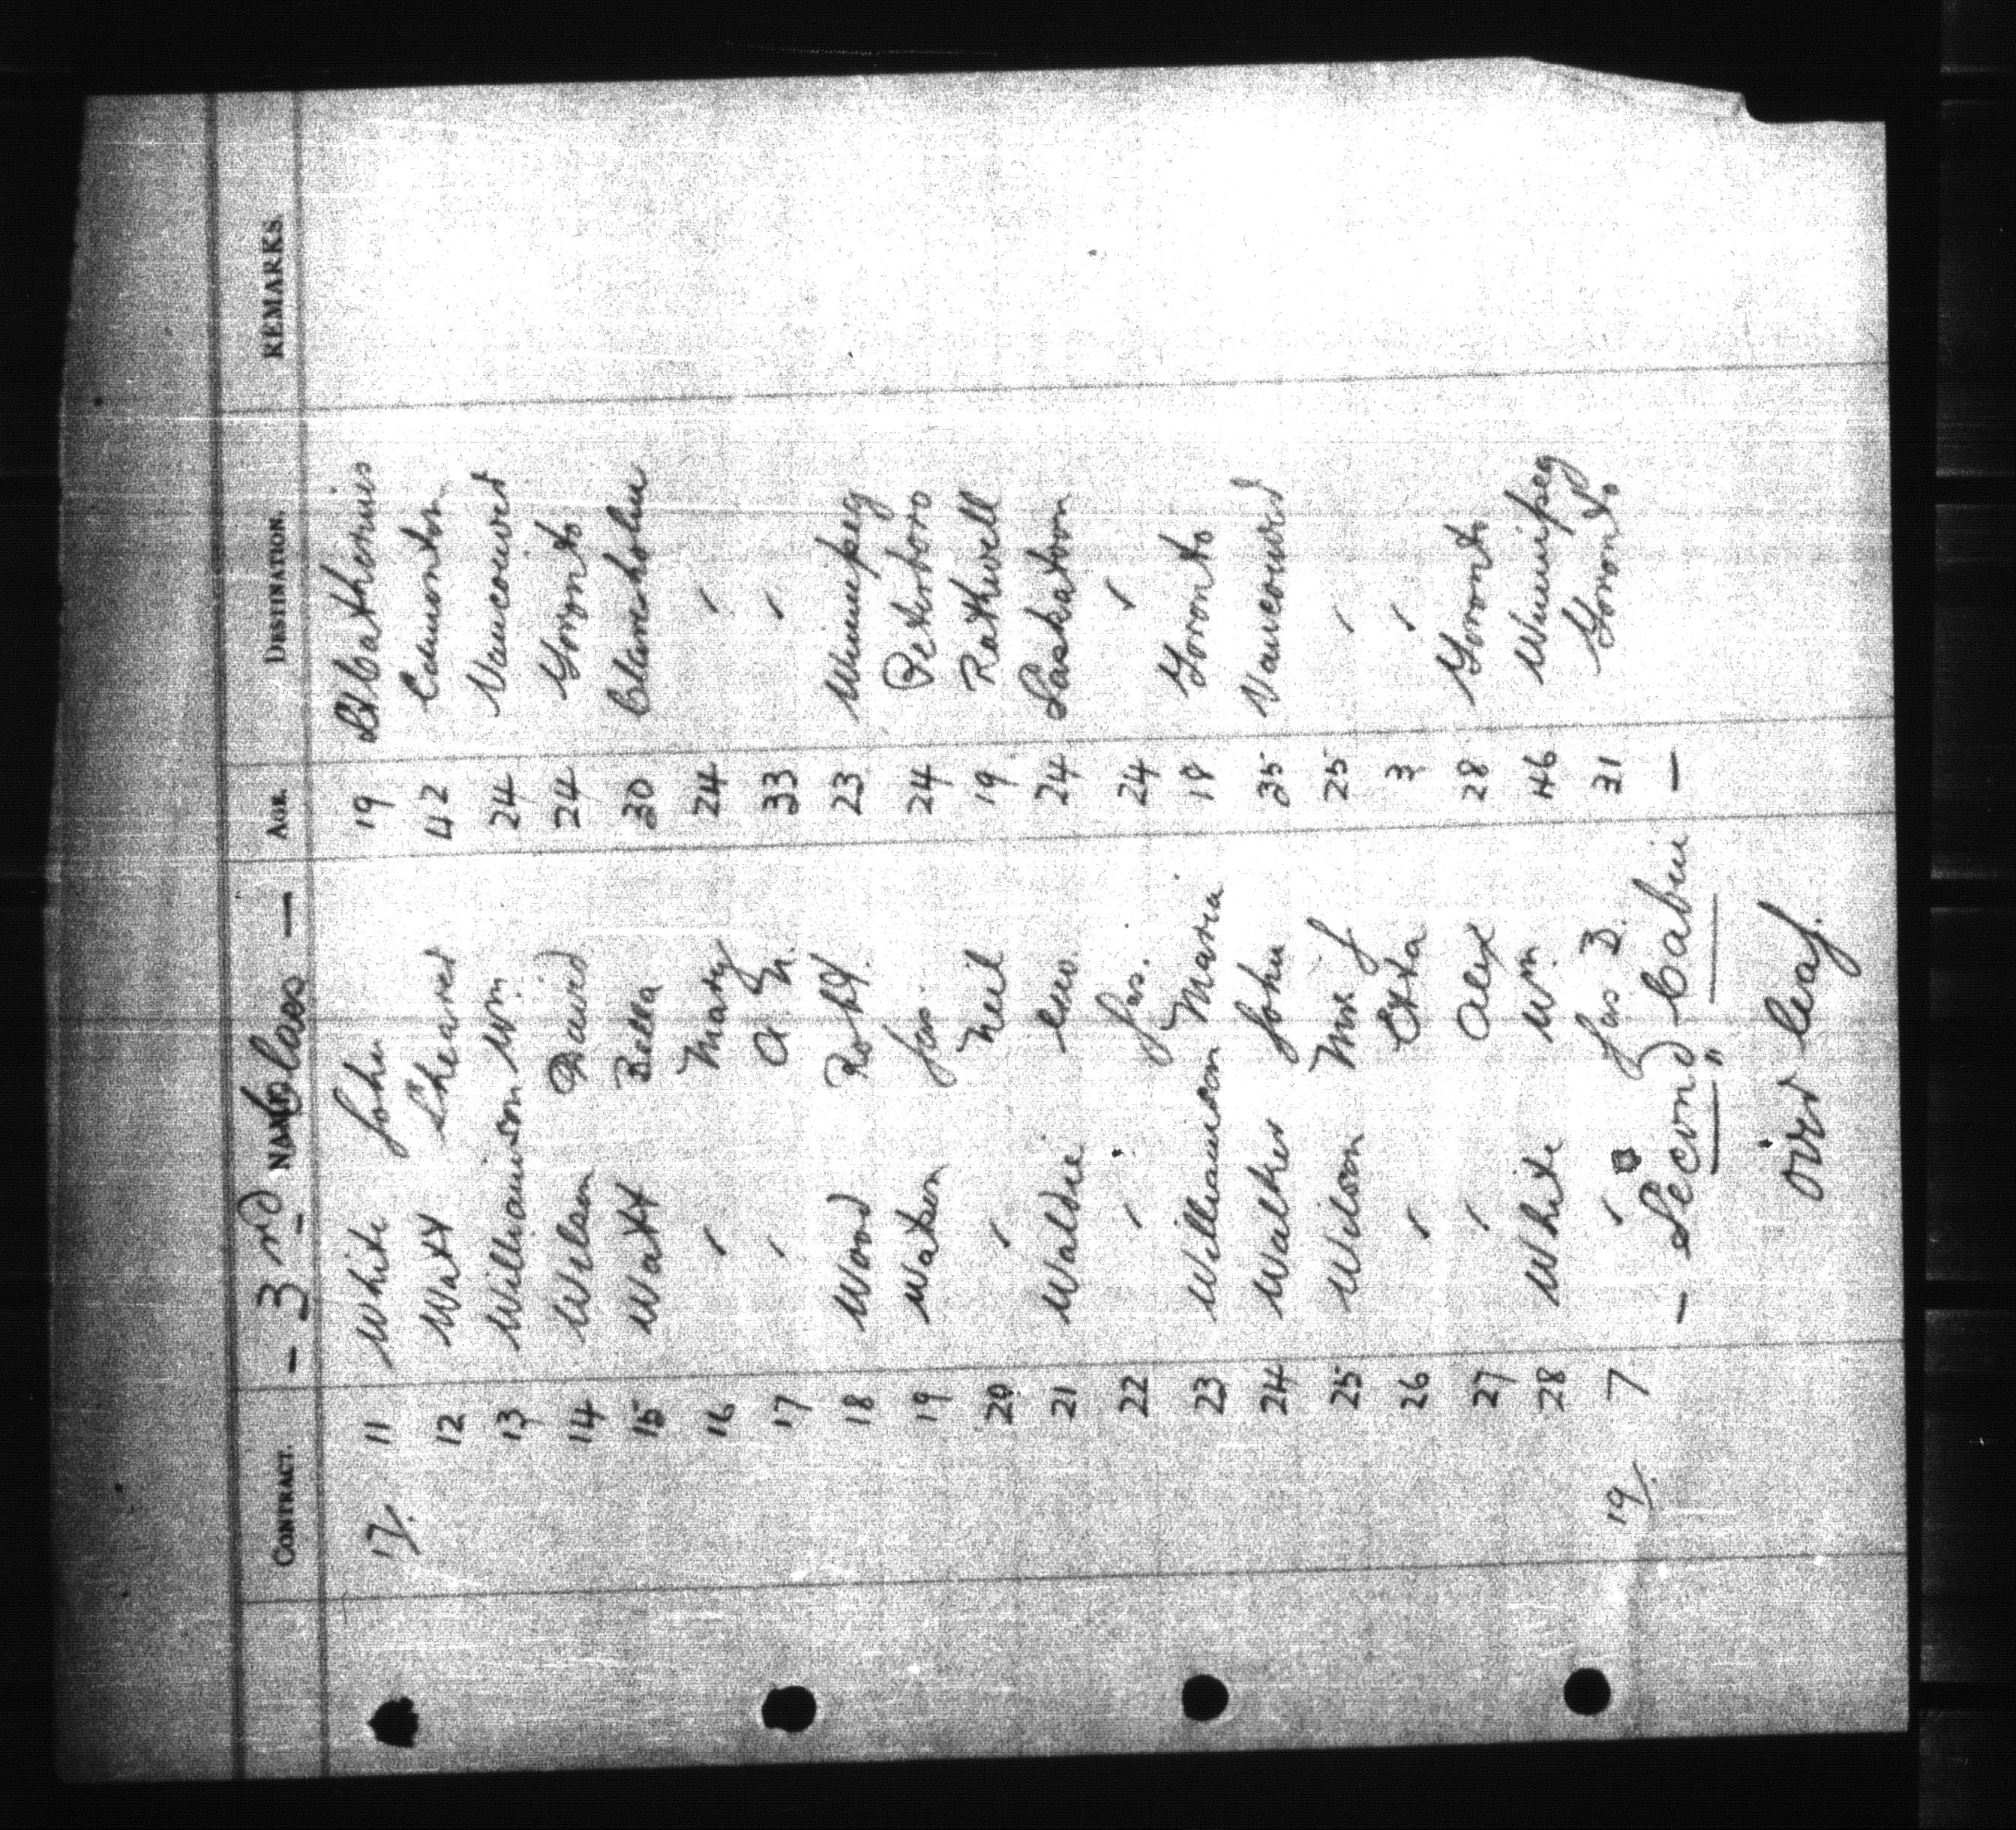 CONTRACT. - 3rd NAME Class - AGE. DESTINATION. REMARKS.
17/. 11 White John 19 St Catherines
12 Watt Shearer 42 Edmonton
13 Williamson Wm. 24 Vancouver
14 Wilson David 24 Toronto
15 Watt Bella 30 Claresholm
16 " Mary 24 "
17 " A. N. 33 "
18 Wood Robt. 23 Winnipeg
19 Watson Jas. 24 Peterboro
20 " Neil 19 Rathwell
21 Waldie 24 Saskatoon
22 " Jas. 24 "
23 Williamson Maria 18 Toronto
24 Walker John 35 Vancouver
25 Wilson Mrs J 25 "
26 " 3 "
27 " Alex 28 Toronto
28 White Wm. 46 Winnipeg
19/. 7 " Jas B. 31 Toronto
- Second Cabin -
"
over leaf.